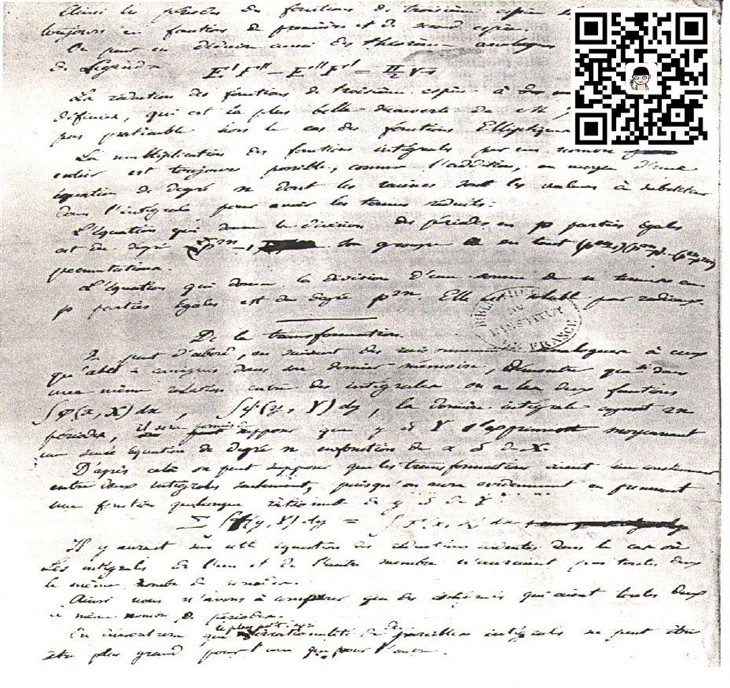 Ainsi les périodes des fonctions de troisième espèce
toujours en fonctions de première et de seconde espèce.
On peut en déduire aussi des théorèmes analogues
de Legendre
La réduction des fonctions de troisième espèce à des
définies, qui est la plus belle découverte de
pas praticable hors le cas des fonctions Elliptiques
La multiplication des fonctions intégrales par un nombre
entier est toujours possible, comme l'addition, au moyen d'une
équation de degré n dont les racines sont les valeurs à substituer
dans l'intégrale pour avoir les termes réduits.
L'équation qui donne la division des périodes en p parties égales
est du degré Son groupe a en tout
permutations.
L'équation qui donne la division d'une somme de n termes en
p parties égales est du degré p²ⁿ. Elle est soluble par radicaux.
BIBLIOTHEQUE DE L'INSTITUT DE FRANCE
De la transformation.
On peut d'abord, en suivant des raisonnements analogues à ceux
qu'Abel a consignés dans son dernier mémoire, démontrer que si dans
une même relation entre des intégrales on a les deux fonctions
∫φ(x, X) dx, ∫ψ(y, Y) dy, la dernière intégrale ayant 2n
périodes, il sera permis de supposer que y et Y s'expriment moyennant
une seule équation de degré n en fonction de x et de X.
D'après cela on peut supposer que les transformations aient lieu constamment
entre deux intégrales seulement, puisqu'on aura évidemment en prenant
une fonction quelconque rationnelle de y et de Y
Σ ∫f(y, Y) dy = ∫F(x, X) dx
Il y aurait sur cette équation des réductions évidentes dans le cas où
les intégrales de l'un et de l'autre membre n'auraient pas toutes deux
le même nombre de périodes.
Ainsi nous n'avons à comparer que des intégrales qui aient toutes deux
le même nombre de périodes.
le plus petit
que irrationnalité de pareilles intégrales ne peut être
être plus grand pour l'une que pour l'autre.